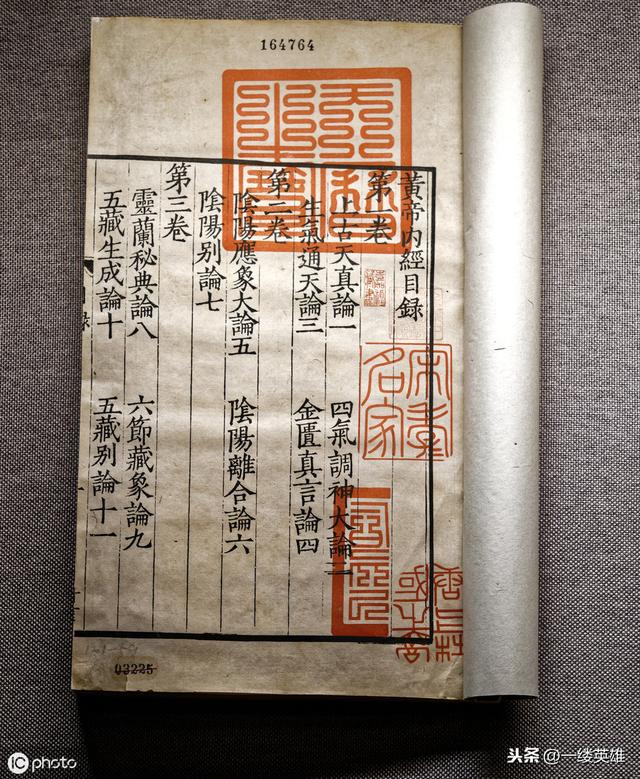 164764
黃帝內經目錄
第一卷
上古天真論一 四氣調神大論二
生氣通天論三 金匱真言論四
第二卷
陰陽應象大論五 陰陽離合論六
陰陽别論七
第三卷
靈蘭秘典論八 六節藏象論九
五藏生成論十 五藏别論十一
03225
iC photo
头条@一缕英雄